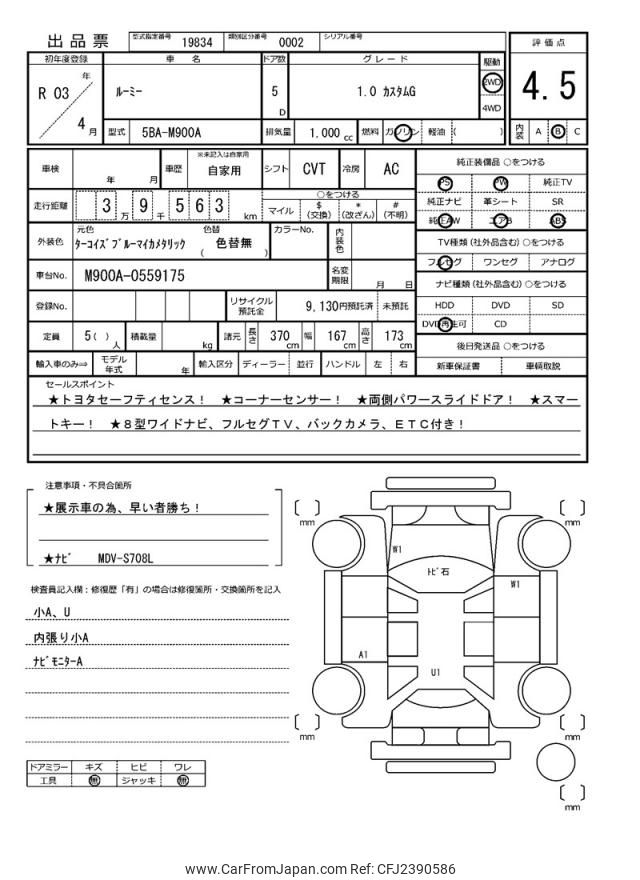 出品票 型式指定番号 19834 類別区分番号 0002 シリアル番号
初年度登録 車名 ドア数 グレード 駆動 評価点
R 03 年 4 月 ルーミー 5 D 1.0 カスタムG 2WD 4WD 4.5
型式 5BA-M900A 排気量 1.000 cc 燃料 ガソリン 軽油 ( ) 内装 A B C
車検 年 月 車歴 ※未記入は自家用 自家用 シフト CVT 冷房 AC
走行距離 3 万 9 千 5 6 3 km
○をつける
マイル $ (交換) * (改ざん) # (不明)
外装色 元色 ターコイズブルーマイカメタリック 色替 ( 色替無 ) カラーNo. 内装色
車台No. M900A-0559175 名変期限 月 日
登録No. リサイクル預託金 9,130円預託済 未預託
定員 5 ( ) 人 積載量 kg 諸元 長さ 370 cm 幅 167 cm 高さ 173 cm
輸入車のみ⇒ モデル年式 年 輸入区分 ディーラー 並行 ハンドル 左 右
純正装備品 ○をつける
PS PW 純正TV
純正ナビ 革シート SR
純正AW エアB ABS
TV種類(社外品含む) ○をつける
フルセグ ワンセグ アナログ
ナビ種類(社外品含む) ○をつける
HDD DVD SD
DVD再生可 CD
後日発送品 ○をつける
新車保証書 車輌取説
セールスポイント
★トヨタセーフティセンス! ★コーナーセンサー! ★両側パワースライドドア! ★スマー
トキー! ★8型ワイドナビ、フルセグTV、バックカメラ、ETC付き!
注意事項・不具合箇所
★展示車の為、早い者勝ち!
★ナビ MDV-S708L
検査員記入欄:修復歴「有」の場合は修復箇所・交換箇所を記入
小A、U
内張り小A
ナビモニターA
ドアミラー キズ ヒビ ワレ
工具 無 ジャッキ 無
mm
mm
W1
トビ石
W1
A1
U1
mm
mm
mm
www.CarFromJapan.com Ref: CFJ2390586